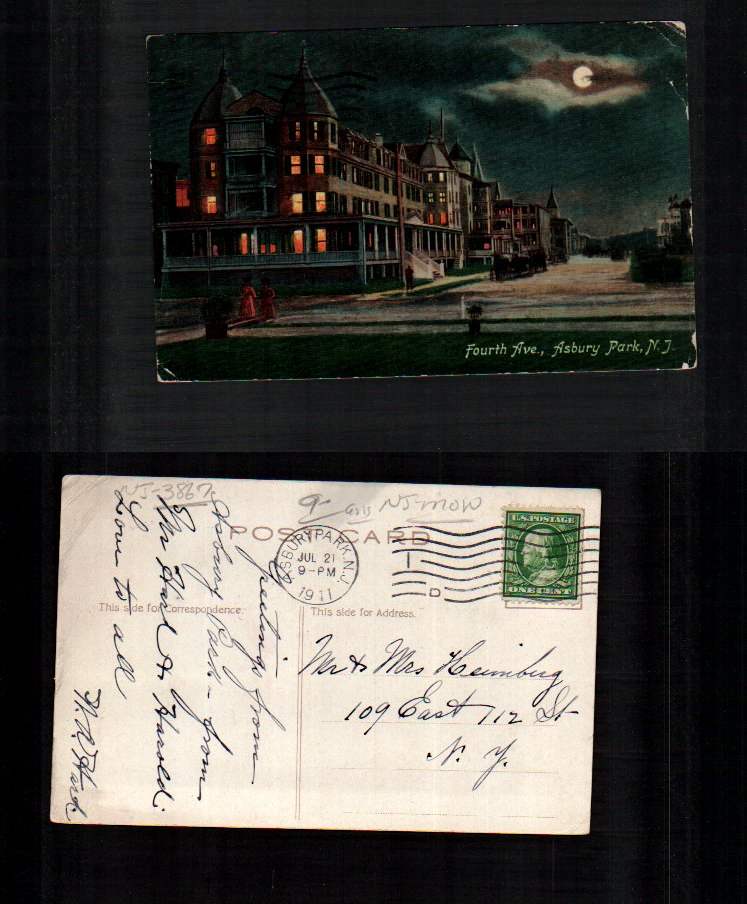 Fourth Ave., Asbury Park, N.J.
NJ-3867
NJ-MOW
POST CARD
ASBURY PARK, N.J.
JUL 21
9-PM
1911
D
U.S. POSTAGE
ONE CENT
This side for Correspondence.
This side for Address.
Greetings from
Asbury Park - from
Mr Hard & Harold.
Love to all
W.A. Hard.
Mr & Mrs Heimberg
109 East 112 St
N. Y.